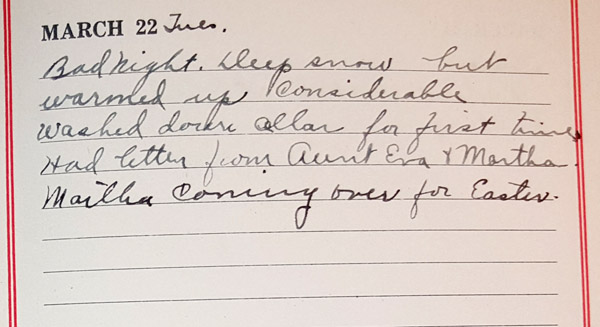 MARCH 22 Tues.
Bad night. Deep snow but
warmed up considerable
washed down cellar for first time
Had letter from Aunt Eva & Martha.
Martha coming over for Easter.